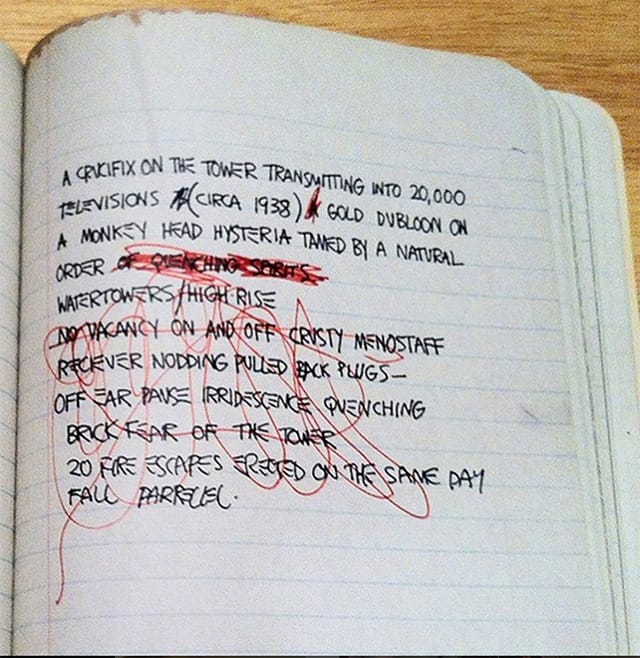 A CRUCIFIX ON THE TOWER TRANSMITTING INTO 20,000
TELEVISIONS (CIRCA 1938) A GOLD DUBLOON ON
A MONKEY HEAD HYSTERIA TAMED BY A NATURAL
ORDER OF QUENCHING SPIRITS
WATERTOWERS/HIGH-RISE
NO VACANCY ON AND OFF CRUSTY MENOSTAFF
RECIEVER NODDING PULLED BACK PLUGS—
OFF EAR PAUSE IRRIDESCENCE QUENCHING
BRICK FEAR OF THE TOWER
20 FIRE ESCAPES ERECTED ON THE SAME DAY
FALL PARRELEL.